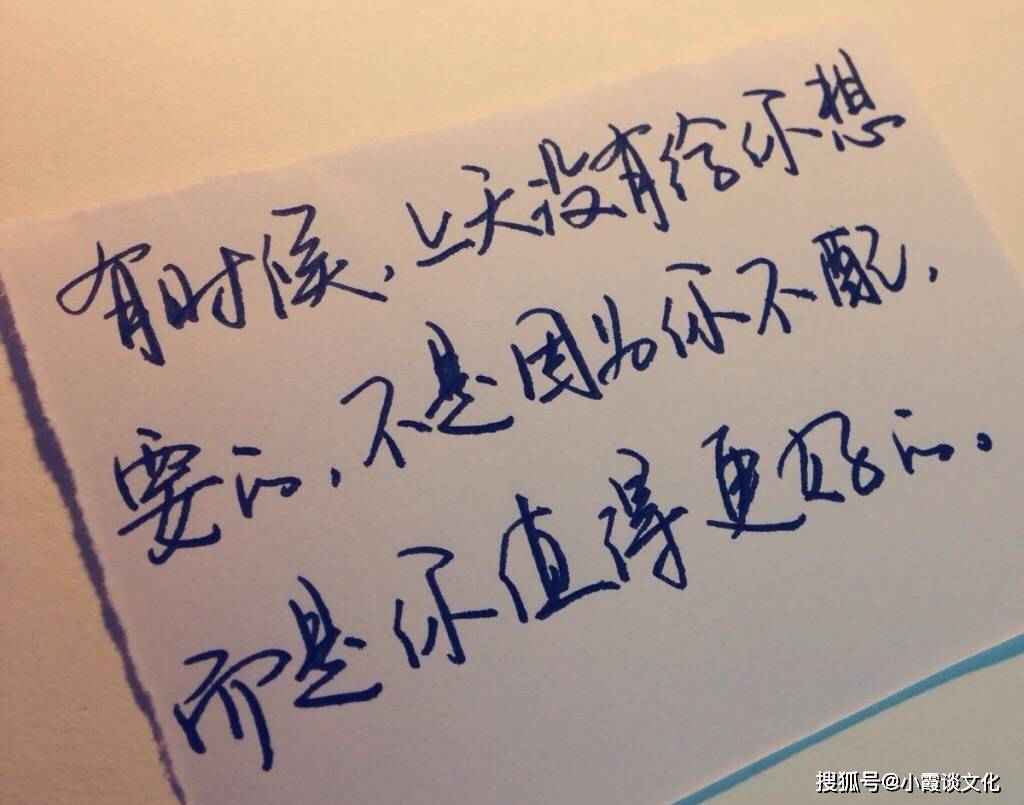 有时候,上天没有给你想
要的,不是因为你不配,
而是你值得更好的。
搜狐号@小霞谈文化